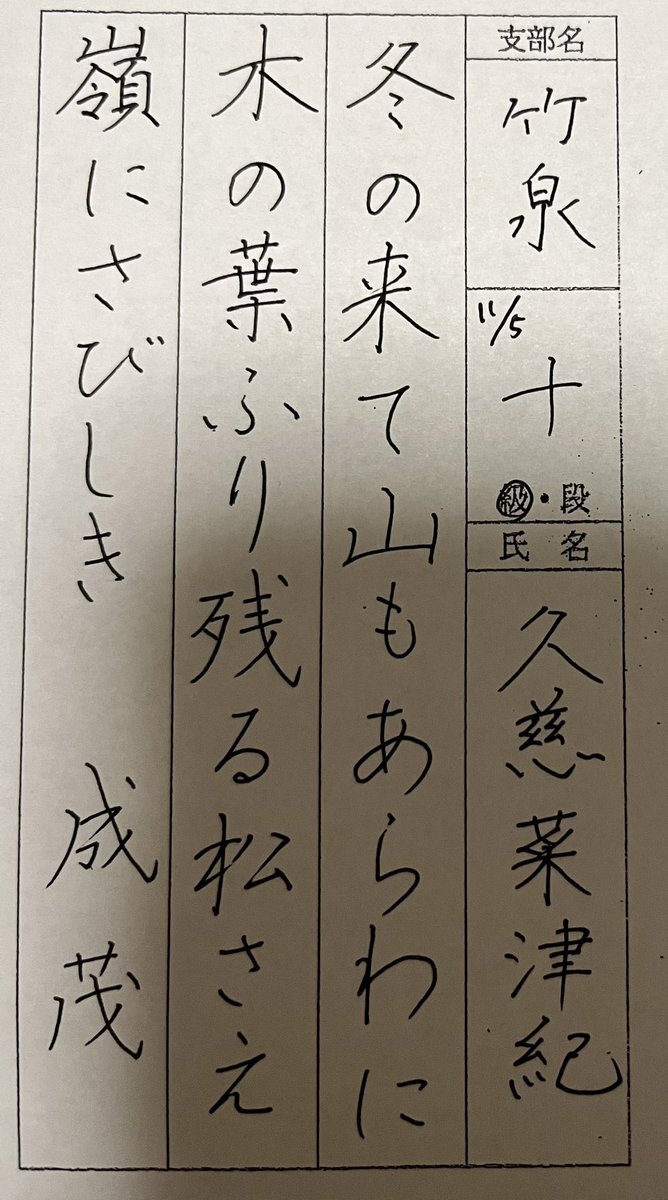 支部名
竹泉
11/5
十
級・段
氏名
久慈菜津紀
冬の来て山もあらわに
木の葉ふり残る松さえ
嶺にさびしき 成茂